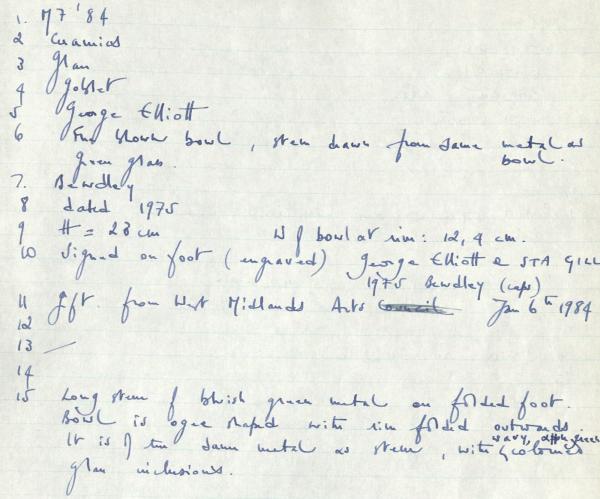 1. M7 '84
2 Ceramics
3 Glass
4 Goblet
5 George Elliott
6 Free blown bowl, stem drawn from same metal as bowl.
green glass.
7. Bewdley
8 dated 1975
9 H = 28 cm W of bowl at rim: 12,4 cm.
10 Signed on foot (engraved) George Elliott & STA GILL
1975 Bewdley (caps)
11 gft. from West Midlands Arts Council Jan 6th 1984
12
13 —
14
15 Long stem of bluish green metal on folded foot.
Bowl is ogee shaped with rim folded outwards.
It is of the same metal as stem, with wavy, green & coloured
glass inclusions.